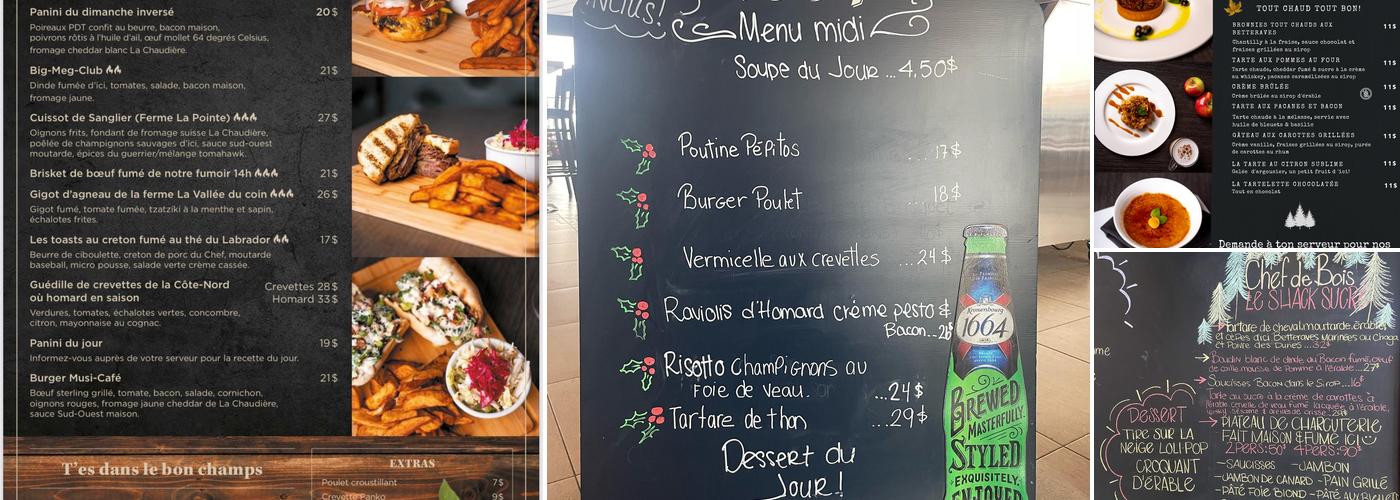 Panini du dimanche inversé 20$
Poireaux PDT confit au beurre, bacon maison,
poivrons rôtis à l'huile d'ail, œuf mollet 64 degrés Celsius,
fromage cheddar blanc La Chaudière.
Big-Meg-Club 21$
Dinde fumée d'ici, tomates, salade, bacon maison,
fromage jaune.
Cuissot de Sanglier (Ferme La Pointe) 27$
Oignons frits, fondant de fromage suisse La Chaudière,
poêlée de champignons sauvages d'ici, sauce sud-ouest
moutarde, épices du guerrier/mélange tomahawk.
Brisket de bœuf fumé de notre fumoir 14h 21$
Gigot d'agneau de la ferme La Vallée du coin 26$
Gigot fumé, tomate fumée, tzatziki à la menthe et sapin,
échalotes frites.
Les toasts au creton fumé au thé du Labrador 17$
Beurre de ciboulette, creton de porc du Chef, moutarde
baseball, micro pousse, salade verte crème cassée.
Guédille de crevettes de la Côte-Nord Crevettes 28$
où homard en saison Homard 33$
Verdures, tomates, échalotes vertes, concombre,
citron, mayonnaise au cognac.
Panini du jour 19$
Informez-vous auprès de votre serveur pour la recette du jour.
Burger Musi-Café 21$
Bœuf sterling grillé, tomate, bacon, salade, cornichon,
oignons rouges, fromage jaune cheddar de La Chaudière,
sauce Sud-Ouest maison.
T'es dans le bon champs
EXTRAS
Poulet croustillant 7$
Crevette Panko 9$
inclus!
Menu midi
Soupe du Jour ...4,50$
Poutine Pépitos ...17$
Burger Poulet ...18$
Vermicelle aux crevettes ...24$
Raviolis d'Homard crème pesto &
Bacon...26$
Risotto Champignons au
Foie de veau. ...24$
Tartare de thon ...29$
Dessert du
Jour!
Kronenbourg
1664
BREWED
MASTERFULLY.
STYLED
EXQUISITELY.
ENJOYED
TOUT CHAUD TOUT BON!
BROWNIES TOUT CHAUDS AUX
BETTERAVES 11$
Chantilly à la fraise, sauce chocolat et
fraises grillées au sirop
TARTE AUX POMMES AU FOUR 11$
Tarte chaude, cheddar fumé & sucre à la crème
au whiskey, pacanes caramélisées au sirop
CRÈME BRÛLÉE 11$
Crème brûlée au sirop d'érable
TARTE AUX PACANES ET BACON 11$
Tarte chaude à la mélasse, servie avec
huile de bleuets & basilic
GÂTEAU AUX CAROTTES GRILLÉES 11$
Crème vanille, fraises grillées au sirop, purée
de carottes au rhum
LA TARTE AU CITRON SUBLIME 11$
Gelée d'argousier, un petit fruit d'ici!
LA TARTELETTE CHOCOLATÉE 11$
Tout en chocolat
Demande à ton serveur pour nos
Chef de Bois
LE SHACK SUCRÉ
Tartare de cheval moutarde, érable,
et cèpes d'ici Betteraves Marinées au Chaga
et Poivre des Dunes ...32$
Boudin blanc de dinde au Bacon fumé, œuf
de caille mousse de Pomme à l'érable...27$
Saucisses Bacon dans le Sirop...16$
Tarte au sucre à la crème de carottes à
PLATEAU DE CHARCUTERIE
FAIT MAISON & FUMÉ ICI
2 PERS: 50$ 4 PERS: 90$
-SAUCISSES -JAMBON
-JAMBON DE CANARD -PAIN GRILLÉ
-PÂTÉ FOIE BLOND -PÂTÉ AUX
DESSERT
TIRE SUR LA
NEIGE LOLI-POP
CROQUANT
D'ÉRABLE